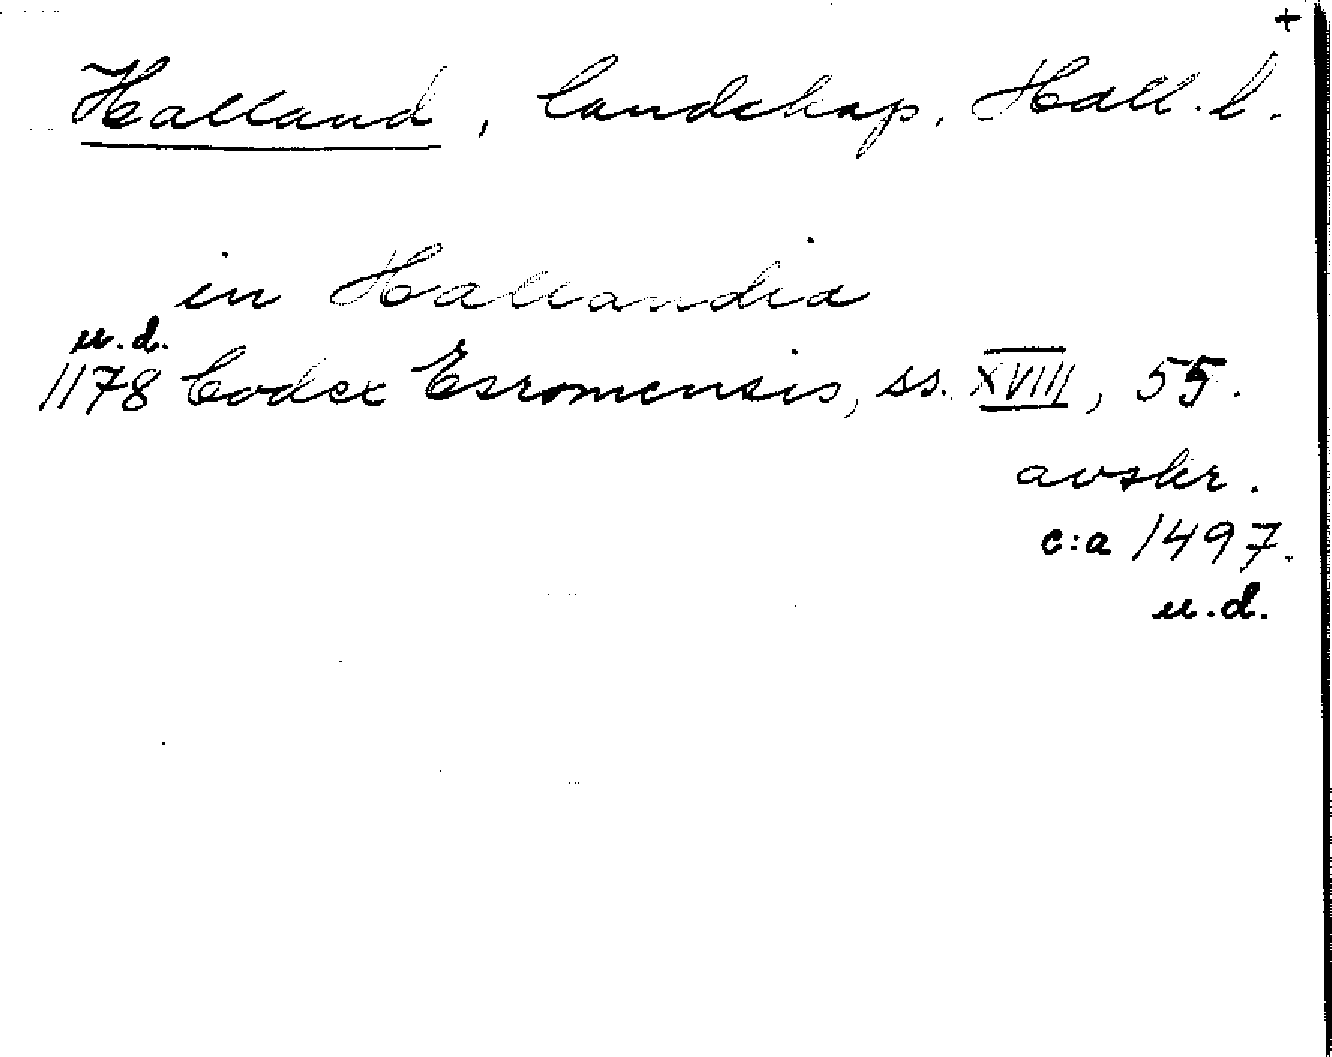 +
Halland, landskap. Hall. l.
in Hallandia
u.d.
1178 Codex Esromensis, ss. XVIII, 55.
avskr.
c:a 1497.
u.d.